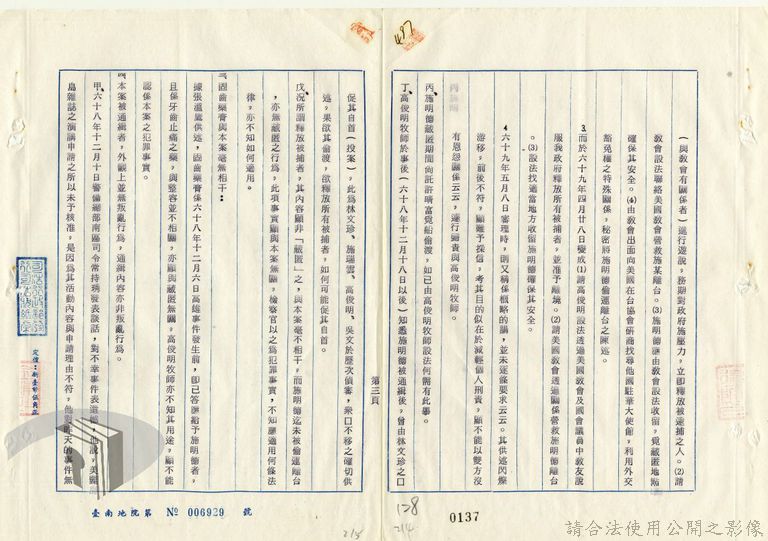 (一與敎會有關係者)進行遊說,務期對政府施壓力,立即釋放被逮捕之人。(2)請
敎會設法聯絡美國敎會營救施某離台。(3)施明德應由敎會設法收留,覓藏匿地點
確保其安全。(4)由敎會出面向美國在台協會硏商找尋他國駐華大使舘,利用外交
豁免權之特殊關係,秘密將施明德偷運離台之陳述。
3.而於六十九年四月廿八日變成(1)請高俊明設法透過美國敎會及國會議員中敎友說
服我政府釋放所有被捕者,並准予離境。(2)請美國敎會透過關係營救施明德離台
。(3)設法找適當地方收留施明德確保其安全。
4.六十九年五月八日審理時,則又稱係概略的講,並未逐條要求云云。其供述閃爍
游移,前後不符,顯難予採信,考其目的似在於減輕個人刑責,顯不能以雙方沒
有恩怨關係云云,遽行歸責與高俊明牧師。
丙施明德藏匿期間向託許晴富覓船偷渡,如已由高俊明牧師設法何需有此舉。
丁、高俊明牧師於事後(六十八年十二月十八日以後)知悉施明德被通緝後,曾由林文珍之口
促其自首(投案),此爲林文珍、施瑞雲、高俊明、吳文於歷次偵審,衆口不移之確切供
述,果欲其偷渡,欲釋放所有被捕者,如何可能促其自首。
戊、況所謂釋放被捕者,其內容顯非「藏匿」之,與本案毫不相干,而施明德迄未被偷運離台
,亦無藏匿之行爲,此項事實顯與本案無關,檢察官以之爲犯罪事實,不知應適用何條法
律,亦不知如何適用。
三、固齒藥膏與本案毫無相干:
據張溫鷹供述,固齒藥膏係六十八年十二月六日高雄事件發生前,即已答應給予施明德者,
且係牙齒止痛之藥,與整容並不相關,亦顯與藏匿無關,高俊明牧師亦不知其用途,顯不能
認係本案之犯罪事實。
四、本案被通緝者,外觀上並無叛亂行爲,通緝內容亦非叛亂行爲。
甲、六十八年十二月十日警備總部南區司令常持琇發表談話,對不幸事件表遺憾,他說,美麗
島雜誌之演講申請之所以未予核准,是因爲其活動內容與申請理由不符,他對昨天的事件無
第三頁
定價:新臺幣伍角正
臺南地院第 № 006929 號
0137
138
214
215
497
請合法使用公開之影像